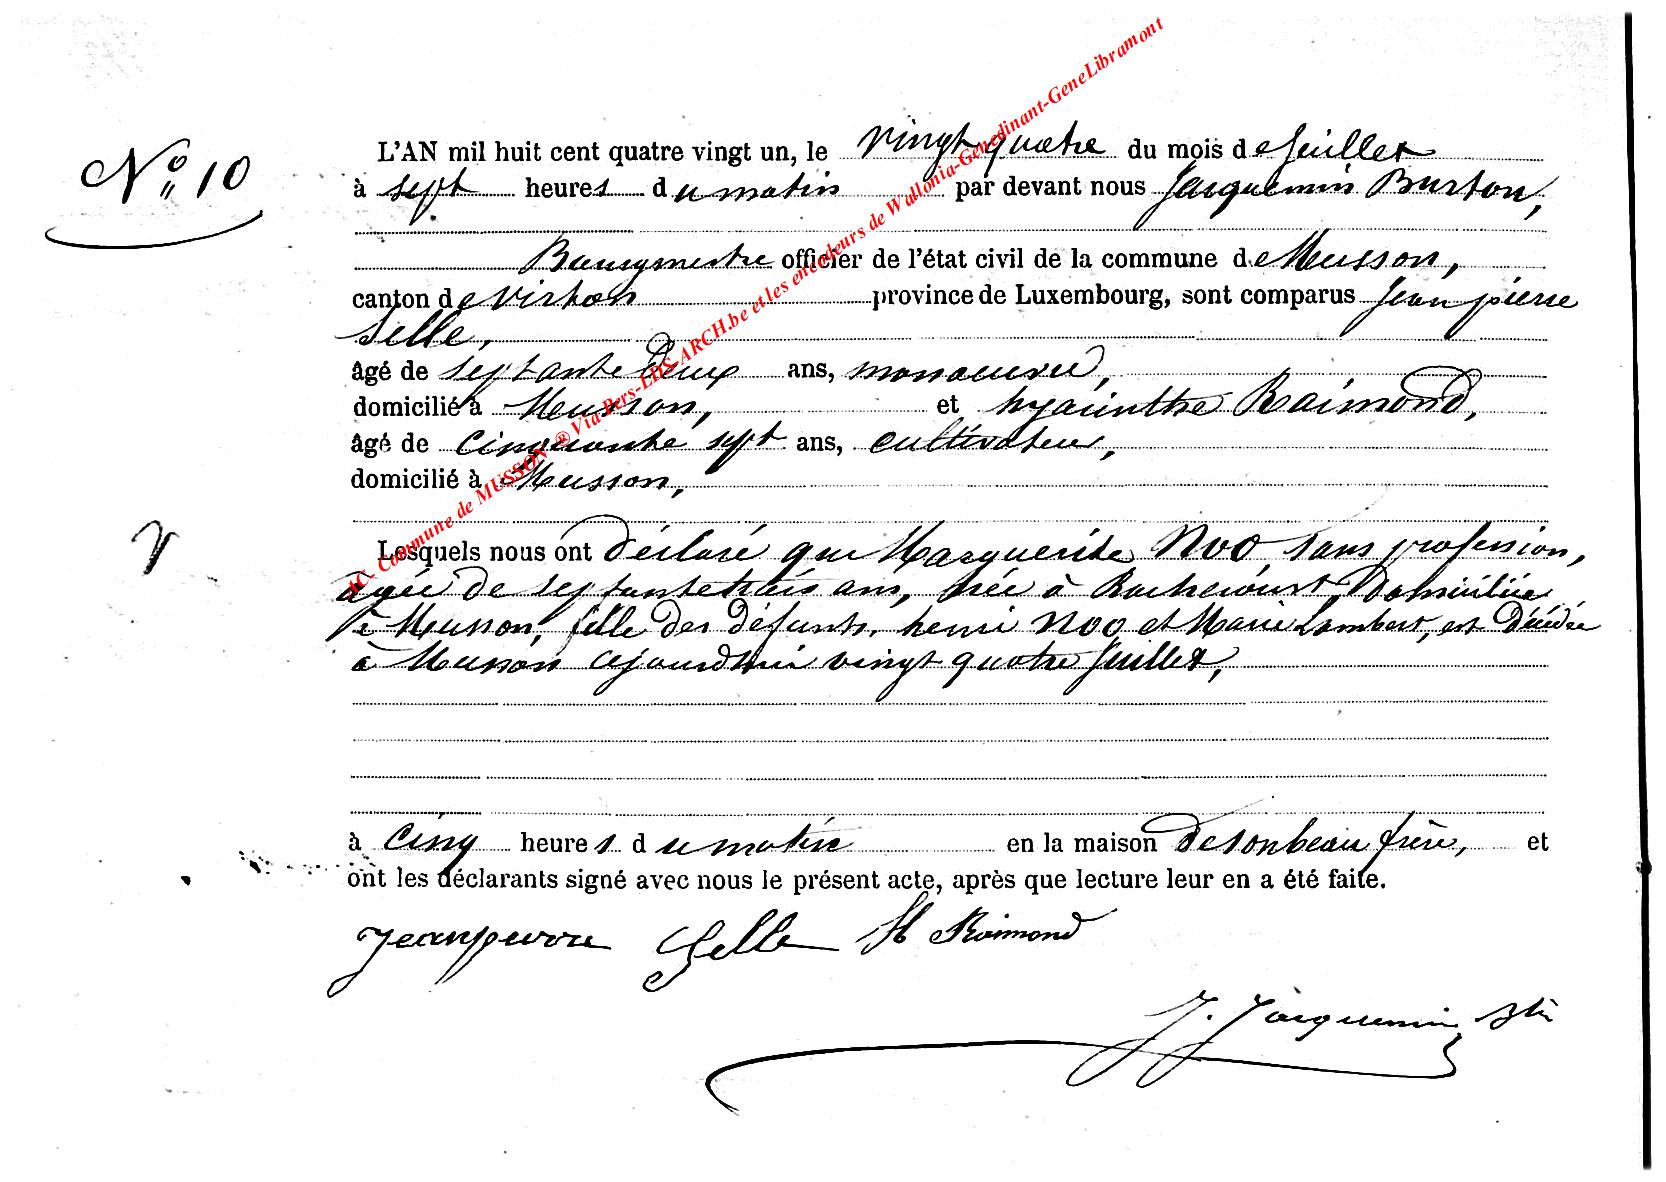 N° 10
L'AN mil huit cent quatre vingt un, le vingt quatre du mois de juillet
à sept heures du matin par devant nous Jacquemin Burton,
Bourgmestre officier de l'état civil de la commune de Musson,
canton de Virton province de Luxembourg, sont comparus Jean pierre
Selle,
âgé de septante deux ans, manoeuvre,
domicilié à Musson, et hyacinthe Raimond,
âgé de cinquante sept ans, cultivateur,
domicilié à Musson,
Lesquels nous ont déclaré que Marguerite Noo sans profession,
agée de septante trois ans, née à Rachecourt, domiciliée
à Musson, fille des défunts, henri Noo et Marie Lambert, est décédée
à Musson cejourd'hui vingt quatre juillet,
à cinq heures du matin en la maison de son beau frère, et
ont les déclarants signé avec nous le présent acte, après que lecture leur en a été faite.
Jeanpierre Selle H Raimond
J. Jacquemin Btn
AC. Commune de MUSSON ® Via Pers-LDS-ARCH.be et les encodeurs de Wallonia-Genedinant-GeneLibramont